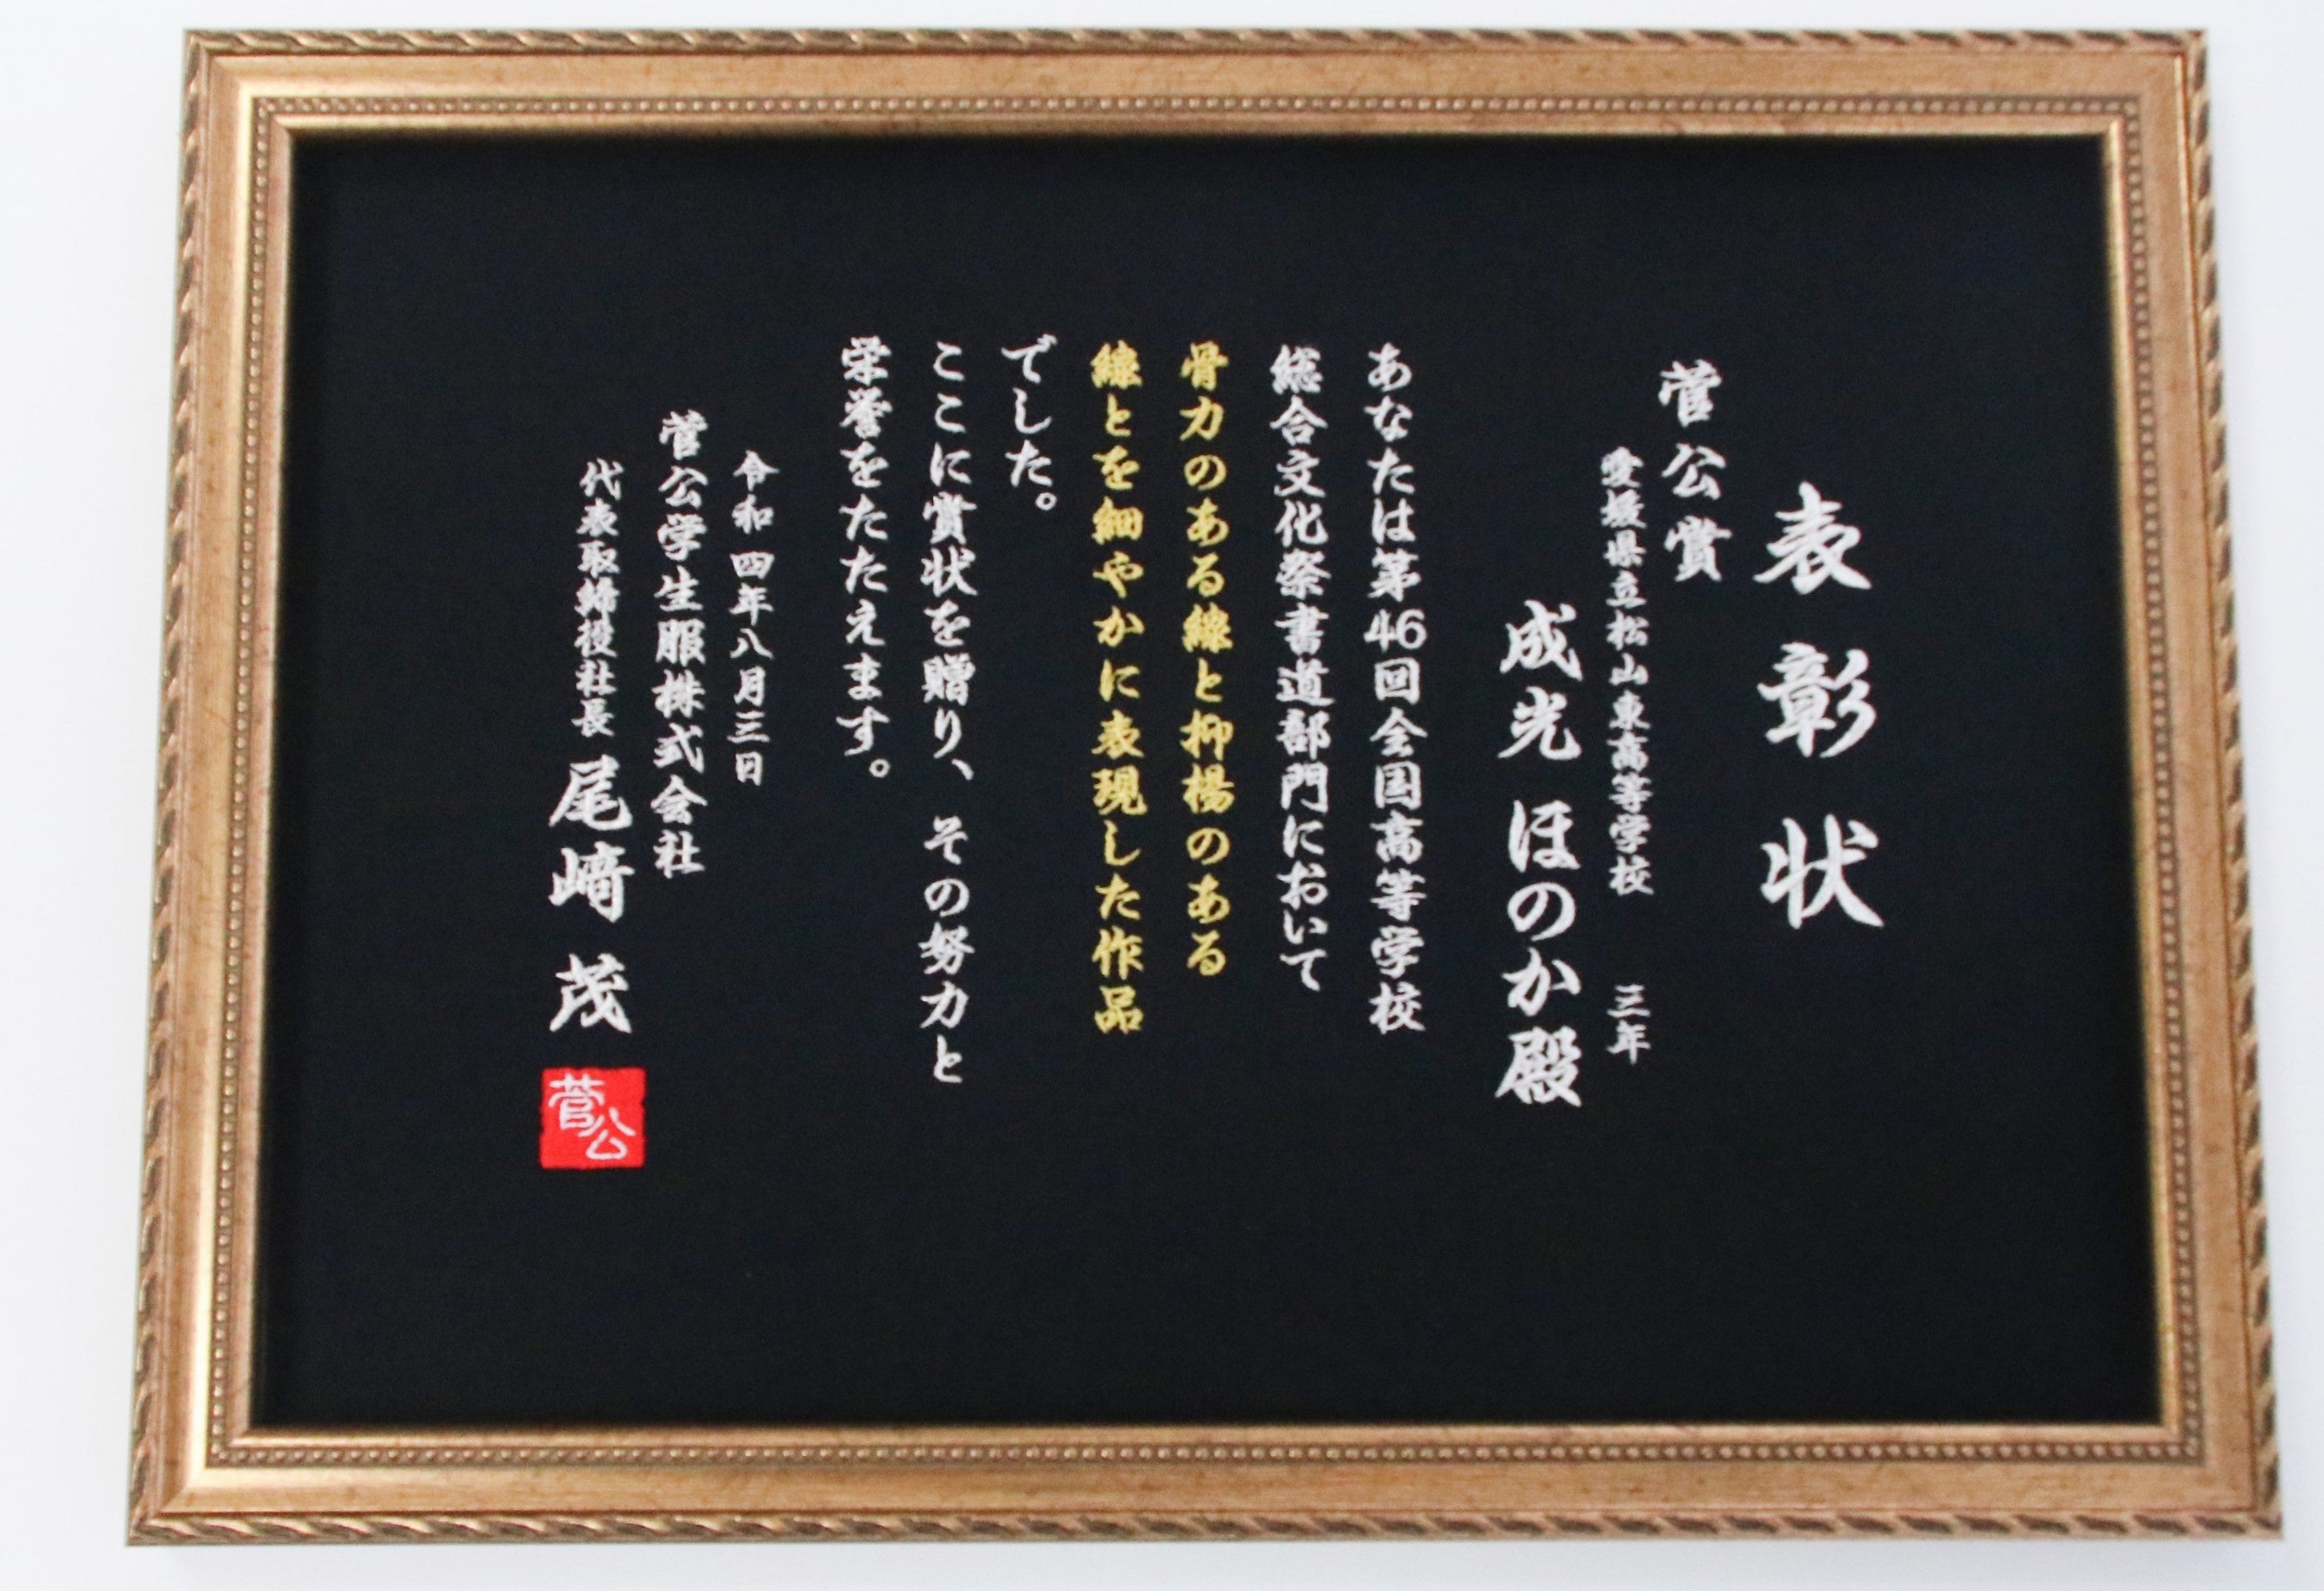 表彰状
菅公賞
愛媛県立松山東高等学校 三年
成光 ほのか殿
あなたは第46回全国高等学校
総合文化祭書道部門において
骨力のある線と抑揚のある
線とを細やかに表現した作品
でした。
ここに賞状を贈り、その努力と
栄誉をたたえます。
令和四年八月三日
菅公学生服株式会社
代表取締役社長 尾﨑 茂
菅公